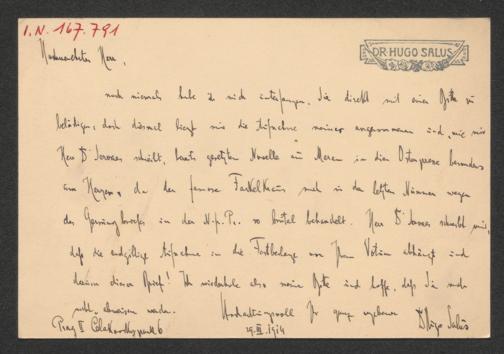 I.N. 167.791
DR HUGO SALUS
Hochverehrter Herr,
noch niemals habe ich mich unterfangen, Sie direkt mit einer Bitte zu
belästigen, doch diesmal liegt mir die Aufnahme meiner angenommenen und, wie mir
Herr Dr Servaes schreibt, bereits gesetzten Novelle am Herzen in die Osterpresse besonders
am Herzen, da der famose Fackelkraus mich in der letzten Nummer wegen
des in der N. fr. Pr. so brutal behandelt. Herr Dr Servaes schreibt mir,
daß die endgiltige Aufnahme in die Festbeilage von Ihrem Votum abhängt und
darum dieser Brief! Ich wiederhole also meine Bitte und hoffe, daß Sie mich
nicht abweisen werden. Hochachtungsvoll Ihr ganz ergebener
Dr Hugo Salus
Prag II 6 19.III.1914